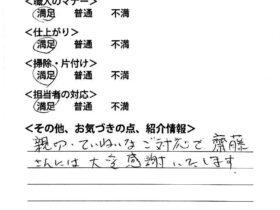 <職人のマナー>
満足 普通 不満
<仕上がり>
満足 普通 不満
<掃除・片付け>
満足 普通 不満
<担当者の対応>
満足 普通 不満
<その他、お気づきの点、紹介情報>
親切、ていねいなご対応で 齋藤
さんには大変感謝いたします